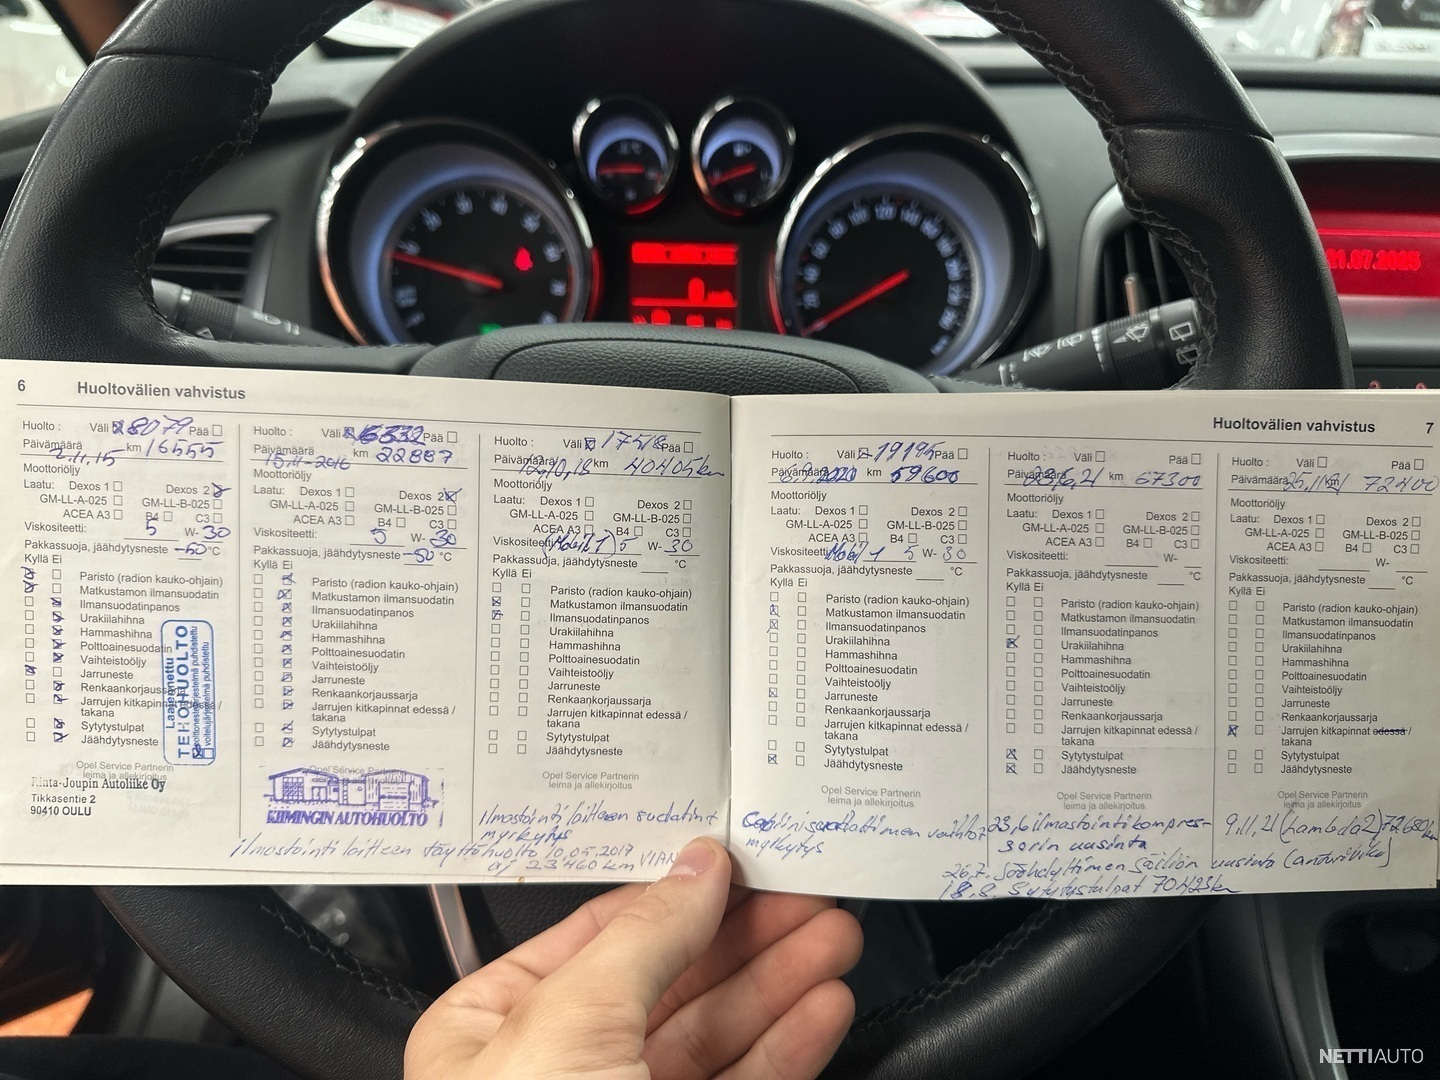 21.07.2025
6
Huoltovälien vahvistus
Huolto :
Väli 8079 Pää
Päivämäärä 2.11.15 km 16555
Moottoriöljy
Laatu: Dexos 1 Dexos 2
GM-LL-A-025 GM-LL-B-025
ACEA A3 B4 C3
Viskositeetti: 5 W- 30
Pakkassuoja, jäähdytysneste -50 °C
Kyllä Ei
Paristo (radion kauko-ohjain)
Matkustamon ilmansuodatin
Ilmansuodatinpanos
Urakiilahihna
Hammashihna
Polttoainesuodatin
Vaihteistoöljy
Jarruneste
Renkaankorjaussarja
Jarrujen kitkapinnat edessä /
takana
Sytytystulpat
Jäähdytysneste
Opel Service Partnerin
leima ja allekirjoitus
Laajennettu
TEHOHUOLTO
Rinta-Joupin Autoliike Oy
Tikkasentie 2
90410 OULU
Huolto :
Väli Pää
Päivämäärä 15.11-2016 km 22887
Moottoriöljy
Laatu: Dexos 1 Dexos 2
GM-LL-A-025 GM-LL-B-025
ACEA A3 B4 C3
Viskositeetti: 5 W- 30
Pakkassuoja, jäähdytysneste -50 °C
Kyllä Ei
Paristo (radion kauko-ohjain)
Matkustamon ilmansuodatin
Ilmansuodatinpanos
Urakiilahihna
Hammashihna
Polttoainesuodatin
Vaihteistoöljy
Jarruneste
Renkaankorjaussarja
Jarrujen kitkapinnat edessä /
takana
Sytytystulpat
Jäähdytysneste
Opel Service Partnerin
KIIMINGIN AUTOHUOLTO
Ilmastointi laitteen täyttöhuolto 10.05.2017
23460 km
Huolto :
Väli Pää
Päivämäärä km 40405 km
Moottoriöljy
Laatu: Dexos 1 Dexos 2
GM-LL-A-025 GM-LL-B-025
ACEA A3 B4 C3
Viskositeetti (Mobil 1) 5 W- 30
Pakkassuoja, jäähdytysneste °C
Kyllä Ei
Paristo (radion kauko-ohjain)
Matkustamon ilmansuodatin
Ilmansuodatinpanos
Urakiilahihna
Hammashihna
Polttoainesuodatin
Vaihteistoöljy
Jarruneste
Renkaankorjaussarja
Jarrujen kitkapinnat edessä /
takana
Sytytystulpat
Jäähdytysneste
Opel Service Partnerin
leima ja allekirjoitus
Ilmastointi laitteen
myrkytys
Huoltovälien vahvistus
7
Huolto :
Väli 19195 Pää
Päivämäärä km 59600
Moottoriöljy
Laatu: Dexos 1 Dexos 2
GM-LL-A-025 GM-LL-B-025
ACEA A3 B4 C3
Viskositeetti Mobil 1 5 W- 30
Pakkassuoja, jäähdytysneste °C
Kyllä Ei
Paristo (radion kauko-ohjain)
Matkustamon ilmansuodatin
Ilmansuodatinpanos
Urakiilahihna
Hammashihna
Polttoainesuodatin
Vaihteistoöljy
Jarruneste
Renkaankorjaussarja
Jarrujen kitkapinnat edessä /
takana
Sytytystulpat
Jäähdytysneste
Opel Service Partnerin
leima ja allekirjoitus
myrkytys
Huolto :
Väli Pää
Päivämäärä km 67300
Moottoriöljy
Laatu: Dexos 1 Dexos 2
GM-LL-A-025 GM-LL-B-025
ACEA A3 B4 C3
Viskositeetti: W-
Pakkassuoja, jäähdytysneste °C
Kyllä Ei
Paristo (radion kauko-ohjain)
Matkustamon ilmansuodatin
Ilmansuodatinpanos
Urakiilahihna
Hammashihna
Polttoainesuodatin
Vaihteistoöljy
Jarruneste
Renkaankorjaussarja
Jarrujen kitkapinnat edessä /
takana
Sytytystulpat
Jäähdytysneste
Opel Service Partnerin
leima ja allekirjoitus
23.6 ilmastointikompres-
sorin uusinta
26.7. Jäähdyttimen säiliön uusinta
18.8. Sytytystulpat 70423km
Huolto :
Väli Pää
Päivämäärä km 72400
Moottoriöljy
Laatu: Dexos 1 Dexos 2
GM-LL-A-025 GM-LL-B-025
ACEA A3 B4 C3
Viskositeetti: W-
Pakkassuoja, jäähdytysneste °C
Kyllä Ei
Paristo (radion kauko-ohjain)
Matkustamon ilmansuodatin
Ilmansuodatinpanos
Urakiilahihna
Hammashihna
Polttoainesuodatin
Vaihteistoöljy
Jarruneste
Renkaankorjaussarja
Jarrujen kitkapinnat edessä /
takana
Sytytystulpat
Jäähdytysneste
Opel Service Partnerin
leima ja allekirjoitus
9.11.21 (Lambda2) 72680km
NETTIAUTO